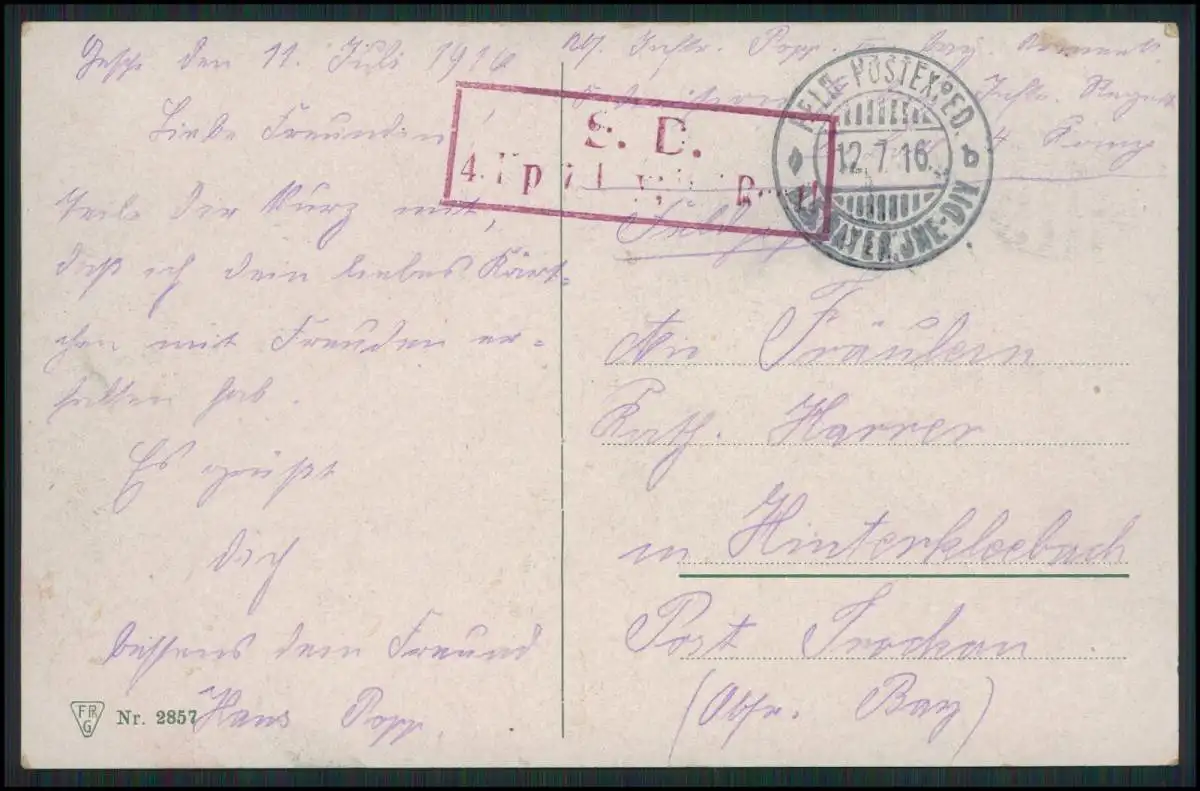 Gesch. den 11. Juli 1916
Liebe Freundin!
Teile dir kurz mit,
daß ich dein liebes Kärt-
chen mit Freuden er-
halten hab.
Es grüßt
dich
bestens dein Freund
Hans Popp.
Nr. 2857
Popp. bay.
Inftr. Regmt
4 Komp
S. B.
FELD-POSTEXPED.
12.7.16.
b
BAYER. INF.-DIV.
An Fräulein
Kath. Karrer
in Hinterkleebach
Post Trockau
(Obfr. Bay)